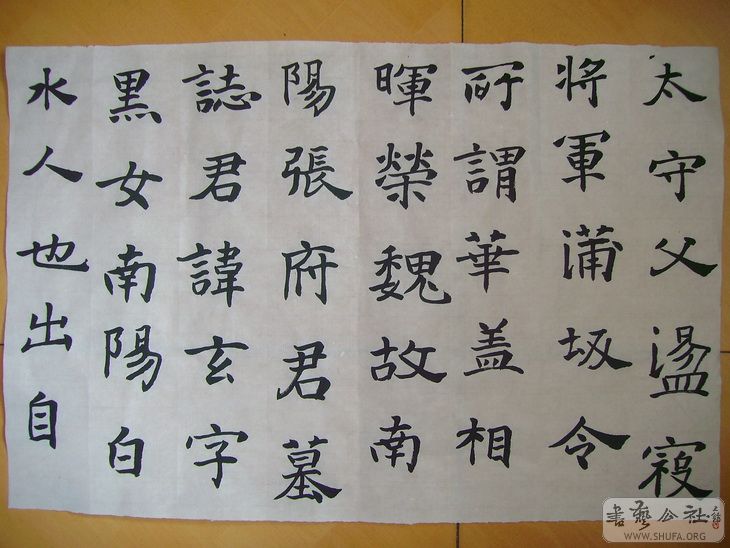 太守父盪寇
将軍蒲坂令
所謂華盖相
暉榮魏故南
陽張府君墓
誌君諱玄字
黒女南陽白
水人也出自
書藝公社
WWW.SHUFA.ORG